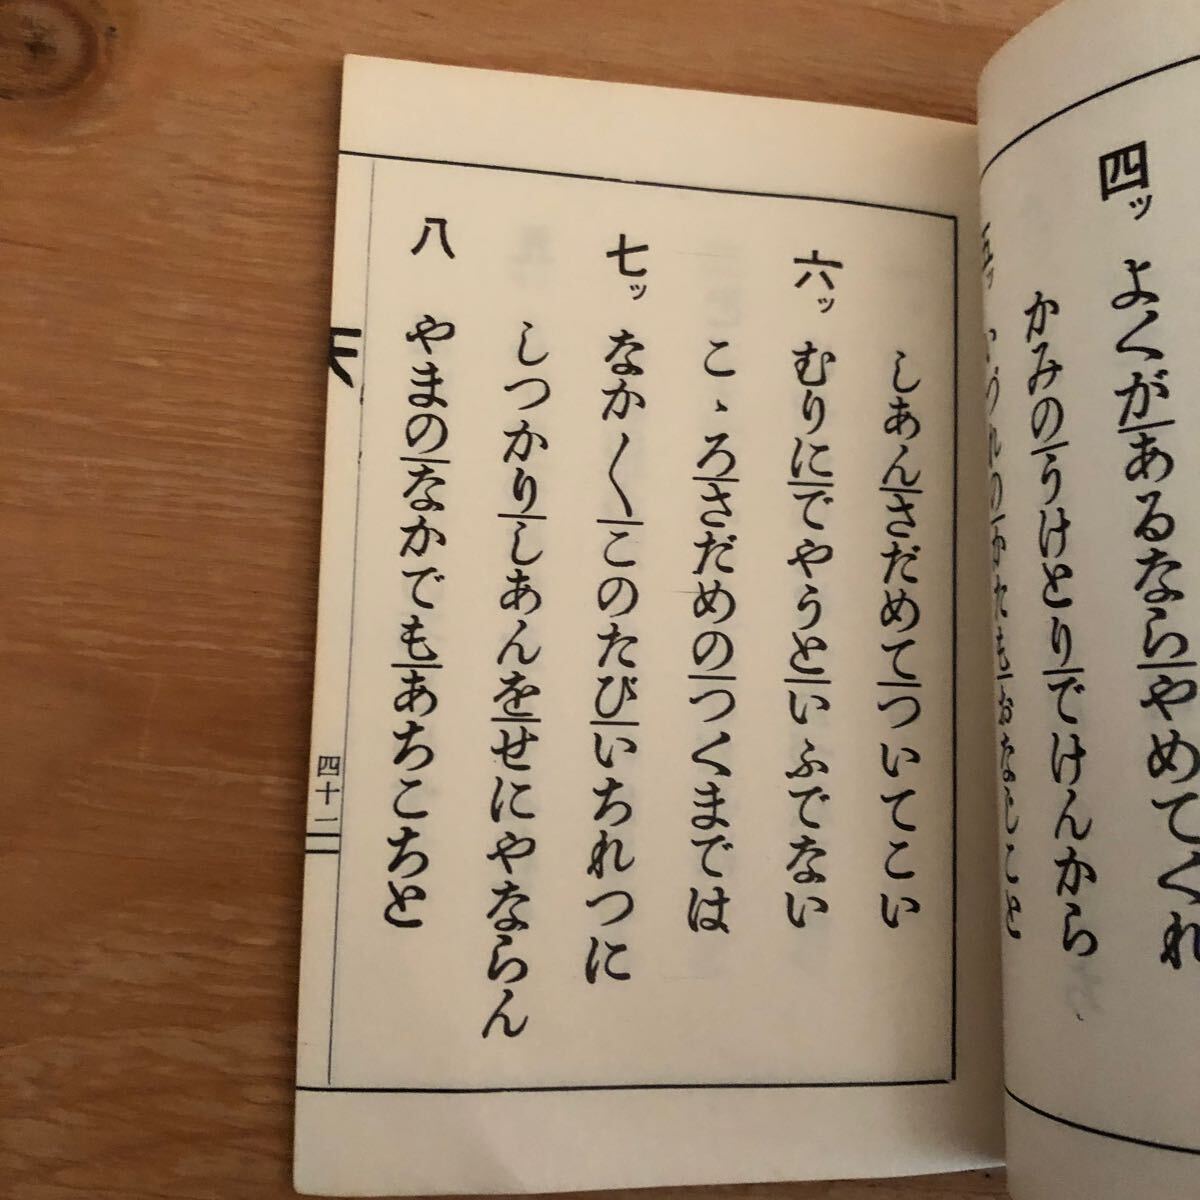 四ッ よくがあるならやめてくれ
かみのうけとりでけんから
しあんさだめてついてこい
六ッ むりにでやうといふでない
こゝろさだめのつくまでは
七ッ なか〱このたびいちれつに
しつかりしあんをせにやならん
八 やまのなかでもあちこちと
四十一